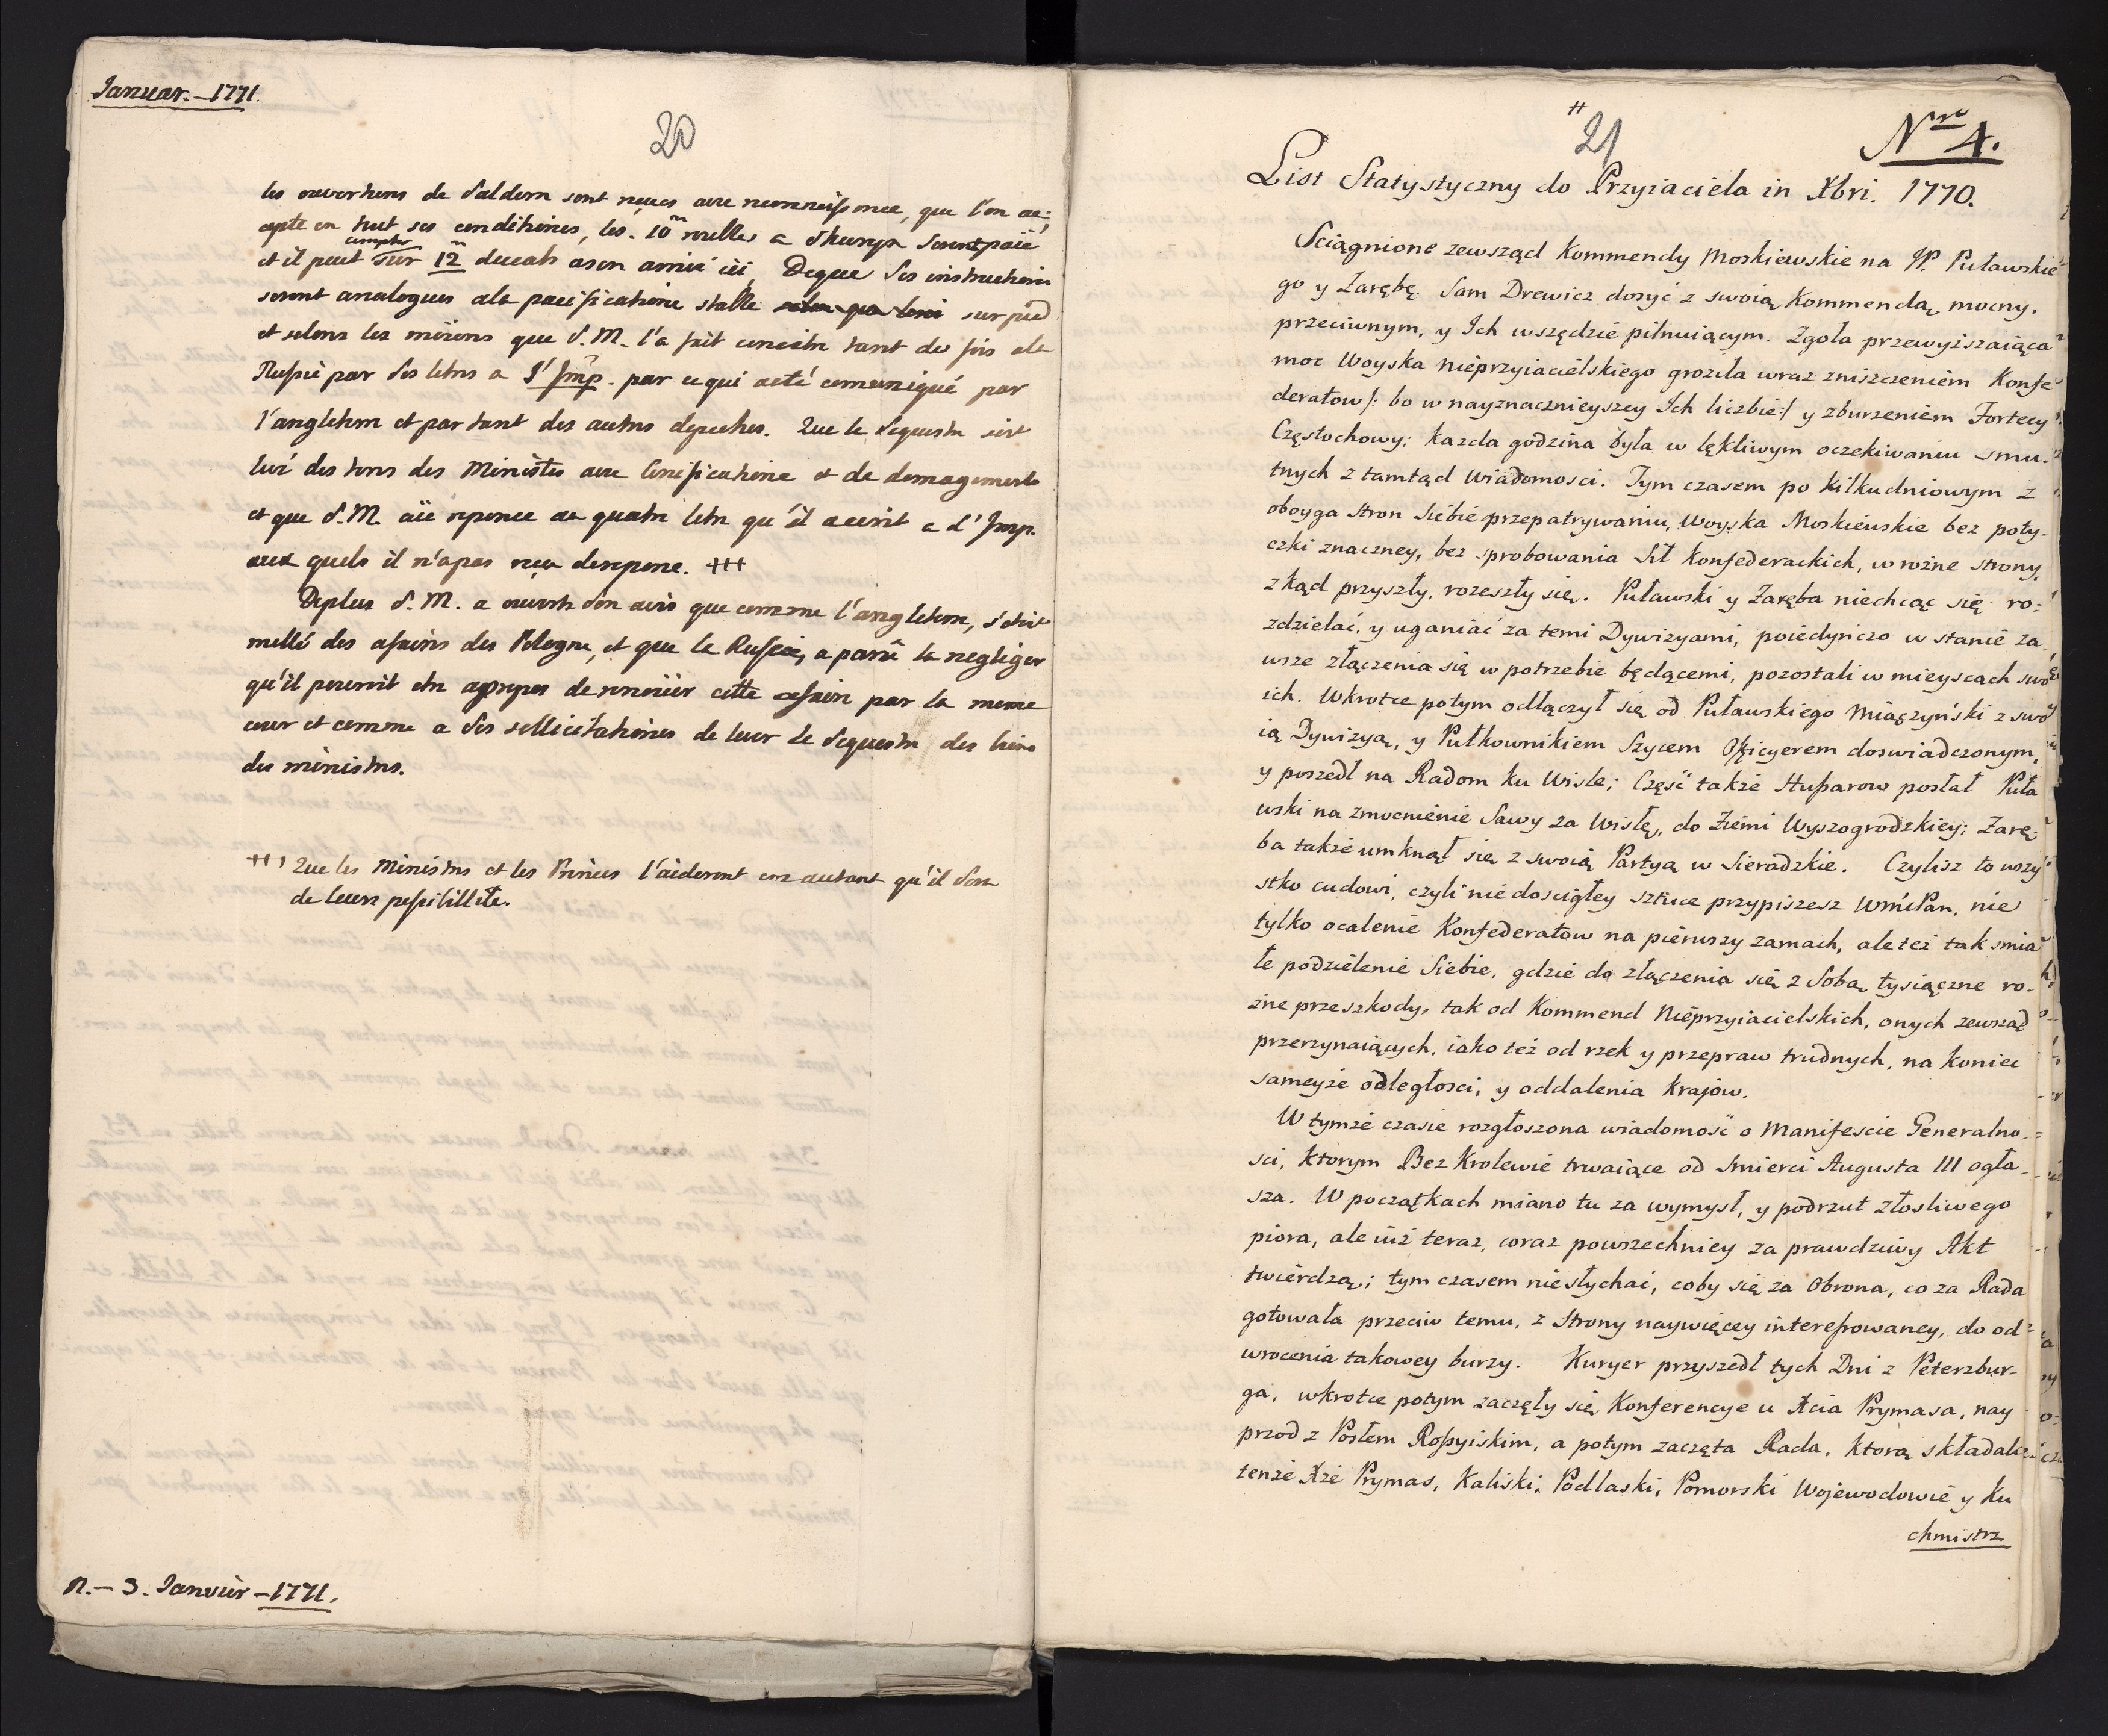 Januar. – 1771.
20
les ouvertures de Saldern sont reçues avec reconnoissance, que l'on ac-
cepte en tout ses conditions, les 10 m roubles a seront paié
et il peut compter sur 12 m ducats a son arrivé ici. De que Ses instructions
seront analogues ala pacificatione stable sur pied
et selons les moiens que S. M. l'a fait conoitre tant de fois ala
Russie par Ses letres a l'Imp. par ce qui aeté comuniqué par
l'angleterre et par tant des autres depeches. Que le Sequestre soit
levé des terres des Ministres avec bonificatione et de domagement
et que S. M. aïe reponce au quatre letre qu'il a ecrit a l'Imp.
aux quels il n'a pas reçu de repone. +++
Deplus S. M. a ouverte Son avis que comme l'angleterre, s'etoit
mellé des afairs des Pologne, et que la Russie, a parû la negliger
qu'il pouroit etre apropos de renouïer cette afaire par la meme
cour et comme a Ses sollicitationes de lever le Sequestre des biens
des ministres.
+++ Que les Ministres et les Princes l'aideront en autant qu'il Sera
de leurs possibillité.
n. – 3. Janvier – 1771.
#
21
Nro 4.
List Statystyczny do Przyiaciela in Xbri. 1770.
Sciągnione zewsząd Kommendy Moskiewskie na JP. Puławskie
go y Zarębę. Sam Drewicz dosyć z swoią Kommendą mocny,
przeciwnym, y Ich wszędzie pilnuiącym. Zgoła przewyższaiąca
moc Woyska nieprzyiacielskiego groziła wraz zniszczeniem Konfe
deratow /: bo w nayznacznieyszey Ich liczbie :/ y zburzeniem Fortecy
Częstochowy; każda godzina była w lękliwym oczekiwaniu smu-
tnych z tamtąd Wiadomosci. Tym czasem po kilkudniowym z
oboyga stron siebie przepatrywaniu, Woyska Moskiewskie bez poty-
czki znaczney, bez sprobowania Sił Konfederackich, w rożne strony,
zkąd przyszły, rozeszły się. Puławski y Zaręba niechcąc się ro-
zdzielać, y uganiać za temi Dywizyami, poiedyńczo w stanie za
wsze złączenia się w potrzebie będącemi, pozostali w mieyscach swo
ich. Wkrotce potym odłączył się od Puławskiego Miączyński z swo
ią Dywizyą, y Pułkownikiem Szycem Officyerem doswiadczonym,
y poszedł na Radom ku Wisle; Część także Hussarow posłał Puła
wski na zmocnienie Sawy za Wisłę, do Ziemi Wyszogrodzkiey; Zarę-
ba także umknął się z swoią Partyą w Sieradzkie. Czylisz to wszy
stko cudowi, czyli niedoscigłey sztuce przypiszesz WmćPan, nie
tylko ocalenie Konfederatow na pierwszy zamach, ale też tak smia
łe podzielenie Siebie, gdzie do złączenia się z Sobą tysiączne ro-
żne przeszkody, tak od Kommend Nieprzyiacielskich, onych zewsząd
przerzynaiących, iako też od rzek y przepraw trudnych, na koniec
sameyże odległosci, y oddalenia krajow.
W tymże czasie rozgłoszona wiadomość o Manifescie Generalno-
sci, ktorym Bez Krolewie trwaiące od smierci Augusta III ogła-
sza. W początkach miano tu za wymysł, y podrzut złosliwego
piora, ale iuż teraz, coraz powszechniey za prawdziwy Akt
twierdzą; tym czasem nie słychać, coby się za Obrona, co za Rada
gotowała przeciw temu, z Strony naywięcey interessowaney, do od-
wrocenia takowey burzy. Kuryer przyszedł tych Dni z Peterzbur-
ga, wkrotce potym zaczęły się Konferencye u Xcia Prymasa, nay
przod z Posłem Rossyiskim, a potym zaczęta Rada, ktorą składali
tenże Xże Prymas, Kaliski, Podlaski, Pomorski Wojewodowie y Ku
chmistrz